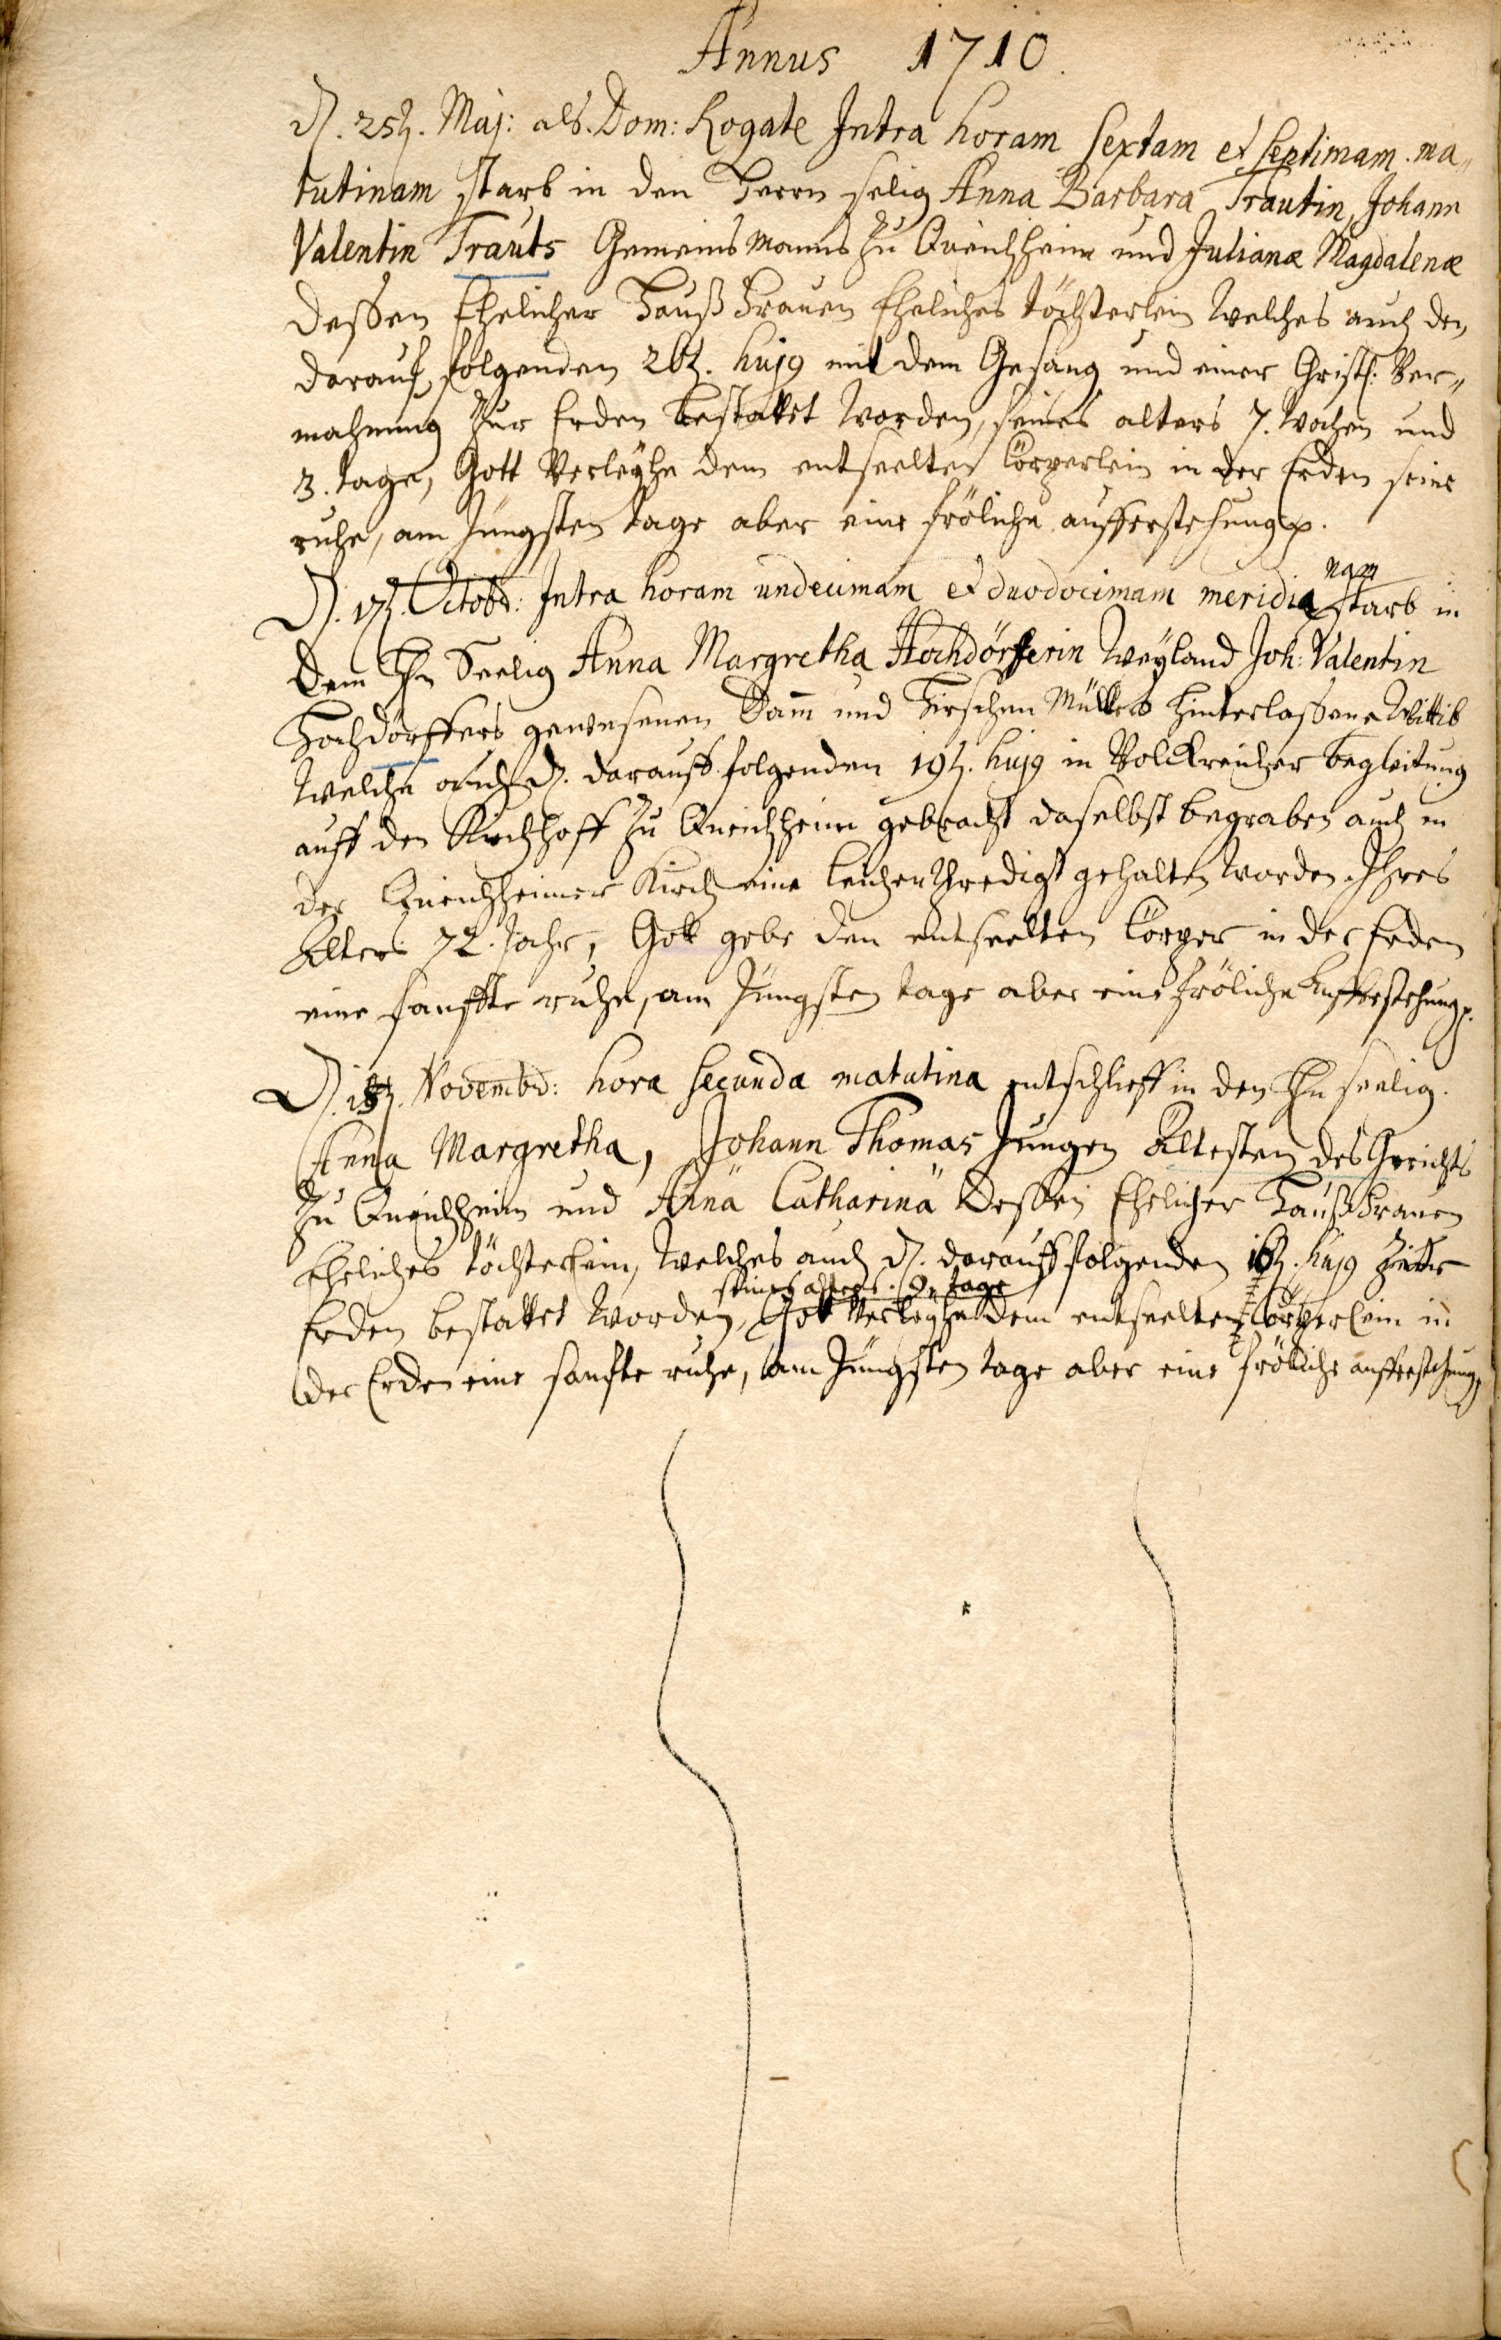 Annus 1710.
D. 25t. Maj: als. Dom: Rogate Intra horam sextam et septimam ma„
tutinam starb in den Herrn selig Anna Barbara Trautin, Johann
Valentin Trauts Gemeinsmanns zu Queichheim und Julianæ Magdalenæ
dessen Ehelicher Hauß Frauen Eheliches töchterlein welches auch den
darauf folgenden 26t. huj9 mit dem Gesang und einer Christl: Ver„
mahnung zur Erden bestattet worden, seines alters 7. Wochen und
3. tage, Gott Verleyhe dem entseelten Cörperlein in der Erden seine
ruhe, am Jüngsten tage aber eine fröliche aufferstehung p.
D. 17t. Octobr: Intra horam undecimam et duodecimam meridia nam starb in
dem Hn Seelig Anna Margretha Hochdörfferin Weyland Joh: Valentin
Hochdörffers gewesenen Dam und Hirschen Müllers hinterlaßene Wittib
Welche auch d. darauff folgenden 19t. huj9 in Volckreicher begleitung
auff den Kirchhoff zu Queichheim gebracht daselbst begraben auch in
der Queichheimer Kirch eine leichen Predigt gehalten worden. Ihres
Alters 72. Jahr, Gott gebe den entseelten Cörper in der Erden
eine sanffte ruhe, am Jüngsten tage aber eine fröliche Aufferstehung p.
D. Novembr: hora secunda matutina entschlieff in den Hn seelig.
Anna Margretha, Johann Thomas Jungen Eltesten des Gerichts
zu Queichheim und Annä Catharinä dessen Ehelicher Hauß Frauen
Eheliches töchterlein, Welches auch d. darauff folgenden 16t. huj9 zur
seines alters. 9. tage
Erden bestattet worden, Gott Verleyhe dem entseelten Cörperlein in
der Erden eine sanfte ruhe, am Jüngsten tage aber eine fröliche aufferstehung